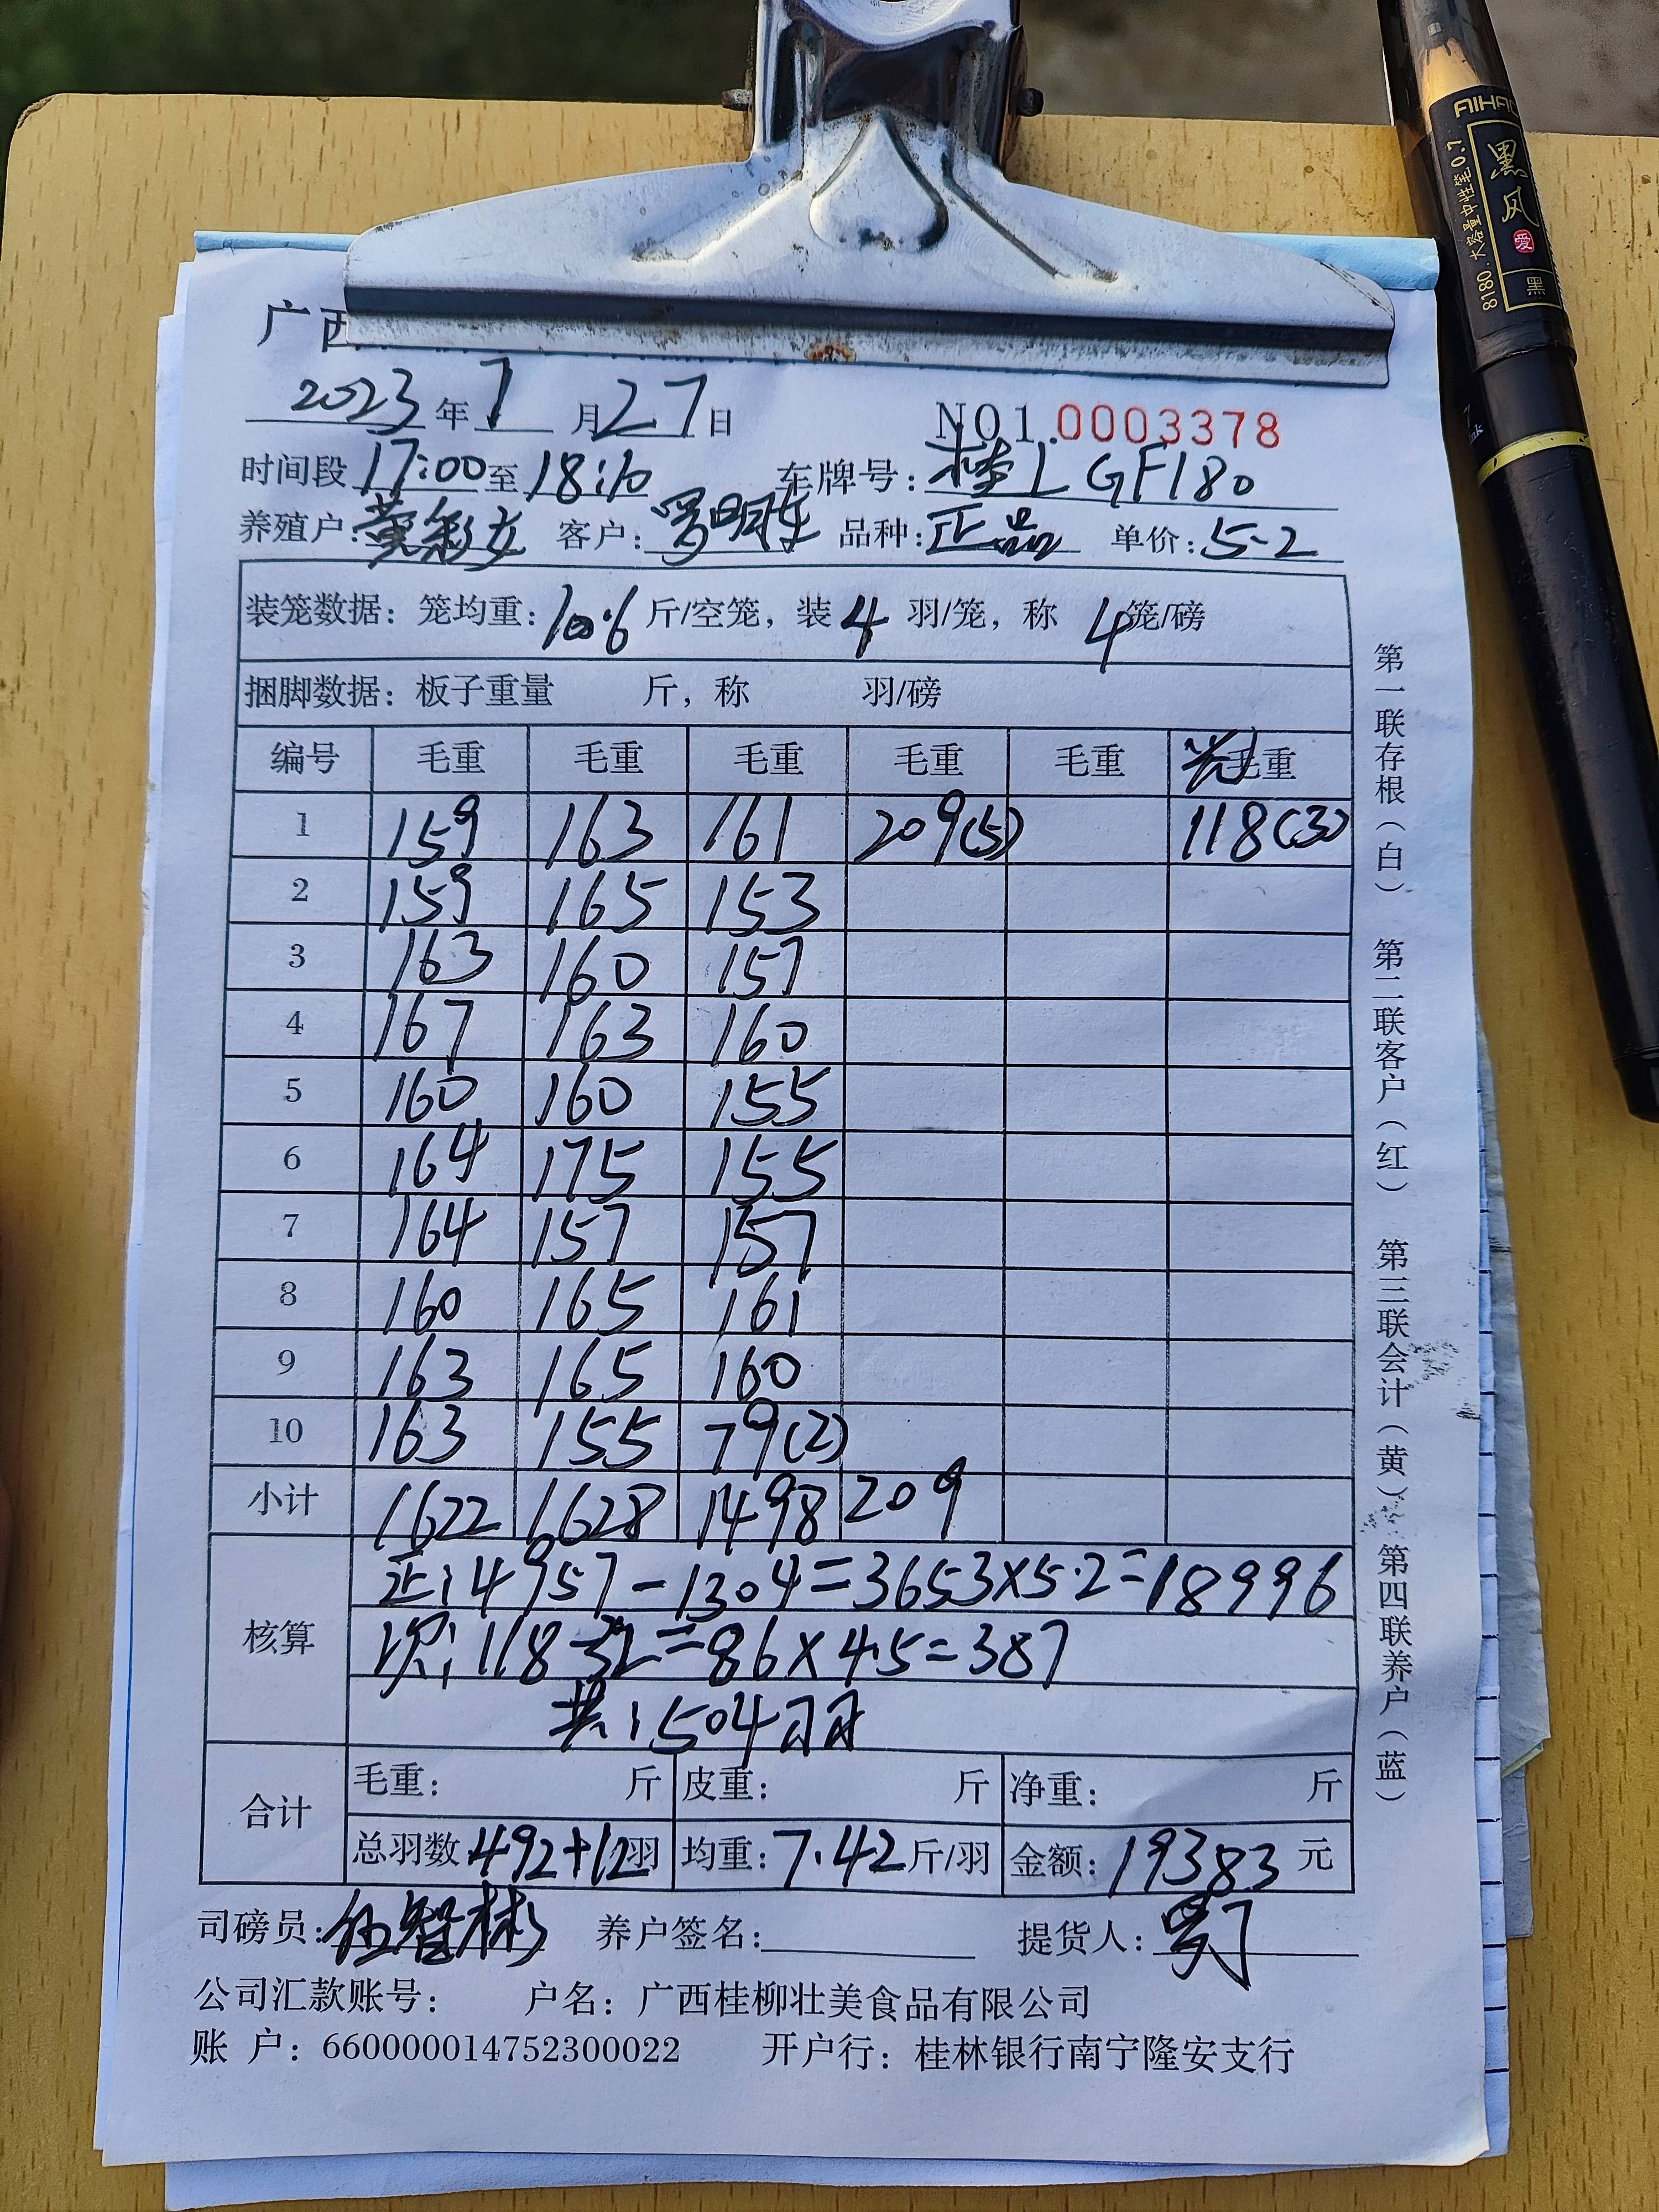 广西
2023年7月27日 NO1.0003378
时间段17:00至18:10 车牌号:桂L GF180
养殖户:黄彩女 客户:罗明东 品种:正品 单价:5.2
装笼数据：笼均重:10.6斤/空笼，装4羽/笼，称4笼/磅
捆脚数据：板子重量 斤，称 羽/磅
编号 毛重 毛重 毛重 毛重 毛重 毛重
1 159 163 161 209(5) 118(3)
2 159 165 153
3 163 160 157
4 167 163 160
5 160 160 155
6 164 175 155
7 164 157 157
8 160 165 161
9 163 165 160
10 163 155 79(2)
小计 1622 1628 1498 209
核算 正:4957-1304=3653×5.2=18996
次:118-32=86×4.5=387
共:504羽
合计 毛重: 斤 皮重: 斤 净重: 斤
总羽数492+12羽 均重:7.42斤/羽 金额:19383元
司磅员:伍智彬 养户签名: 提货人:
公司汇款账号: 户名：广西桂柳壮美食品有限公司
账 户：660000014752300022 开户行：桂林银行南宁隆安支行
第一联存根（白） 第二联客户（红） 第三联会计（黄） 第四联养户（蓝）
AIHAO
黑风
爱
黑
8180.大容量中性笔0.7